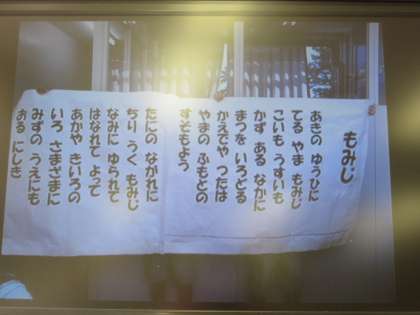 もみじ
あきの ゆうひに
てる やま もみじ
こいも うすいも
かず ある なかに
まつを いろどる
かえでや つたは
やまの ふもとの
すそもよう
たにの ながれに
ちり うく もみじ
なみに ゆられて
はなれて よって
あかや きいろの
いろ さまざまに
みずの うえにも
おる にしき